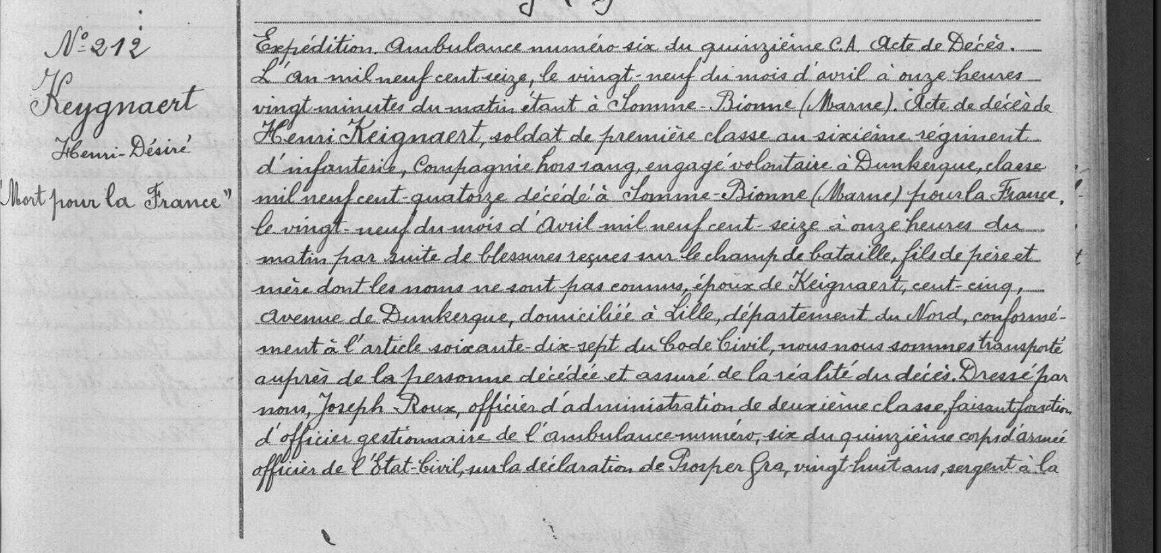 N° 212
Keygnaert
Henri-Désiré
"Mort pour la France"
Expédition. Ambulance numéro six du quinzième C.A. Acte de Décès.
L'an mil neuf cent seize, le vingt-neuf du mois d'avril à onze heures
vingt minutes du matin étant à Somme-Bionne (Marne). Acte de décès de
Henri Keignaert, soldat de première classe au sixième régiment
d'infanterie, Compagnie hors rang, engagé volontaire à Dunkerque, classe
mil neuf cent-quatorze décédé à Somme-Bionne (Marne) pour la France,
le vingt-neuf du mois d'Avril mil neuf cent-seize à onze heures du
matin par suite de blessures reçues sur le champ de bataille, fils de père et
mère dont les noms ne sont pas connus, époux de Keignaert, cent-cinq,
Avenue de Dunkerque, domiciliée à Lille, département du Nord, conformé-
ment à l'article soixante-dix-sept du Code Civil, nous nous sommes transporté
auprès de la personne décédée et assuré de la réalité du décès. Dressé par
nous, Joseph Roux, officier d'administration de deuxième classe, faisant fonction
d'officier gestionnaire de l'ambulance numéro, six du quinzième corps d'armée
officier de l'Etat-Civil, sur la déclaration de Prosper Gra, vingt-huit ans, sergent à la